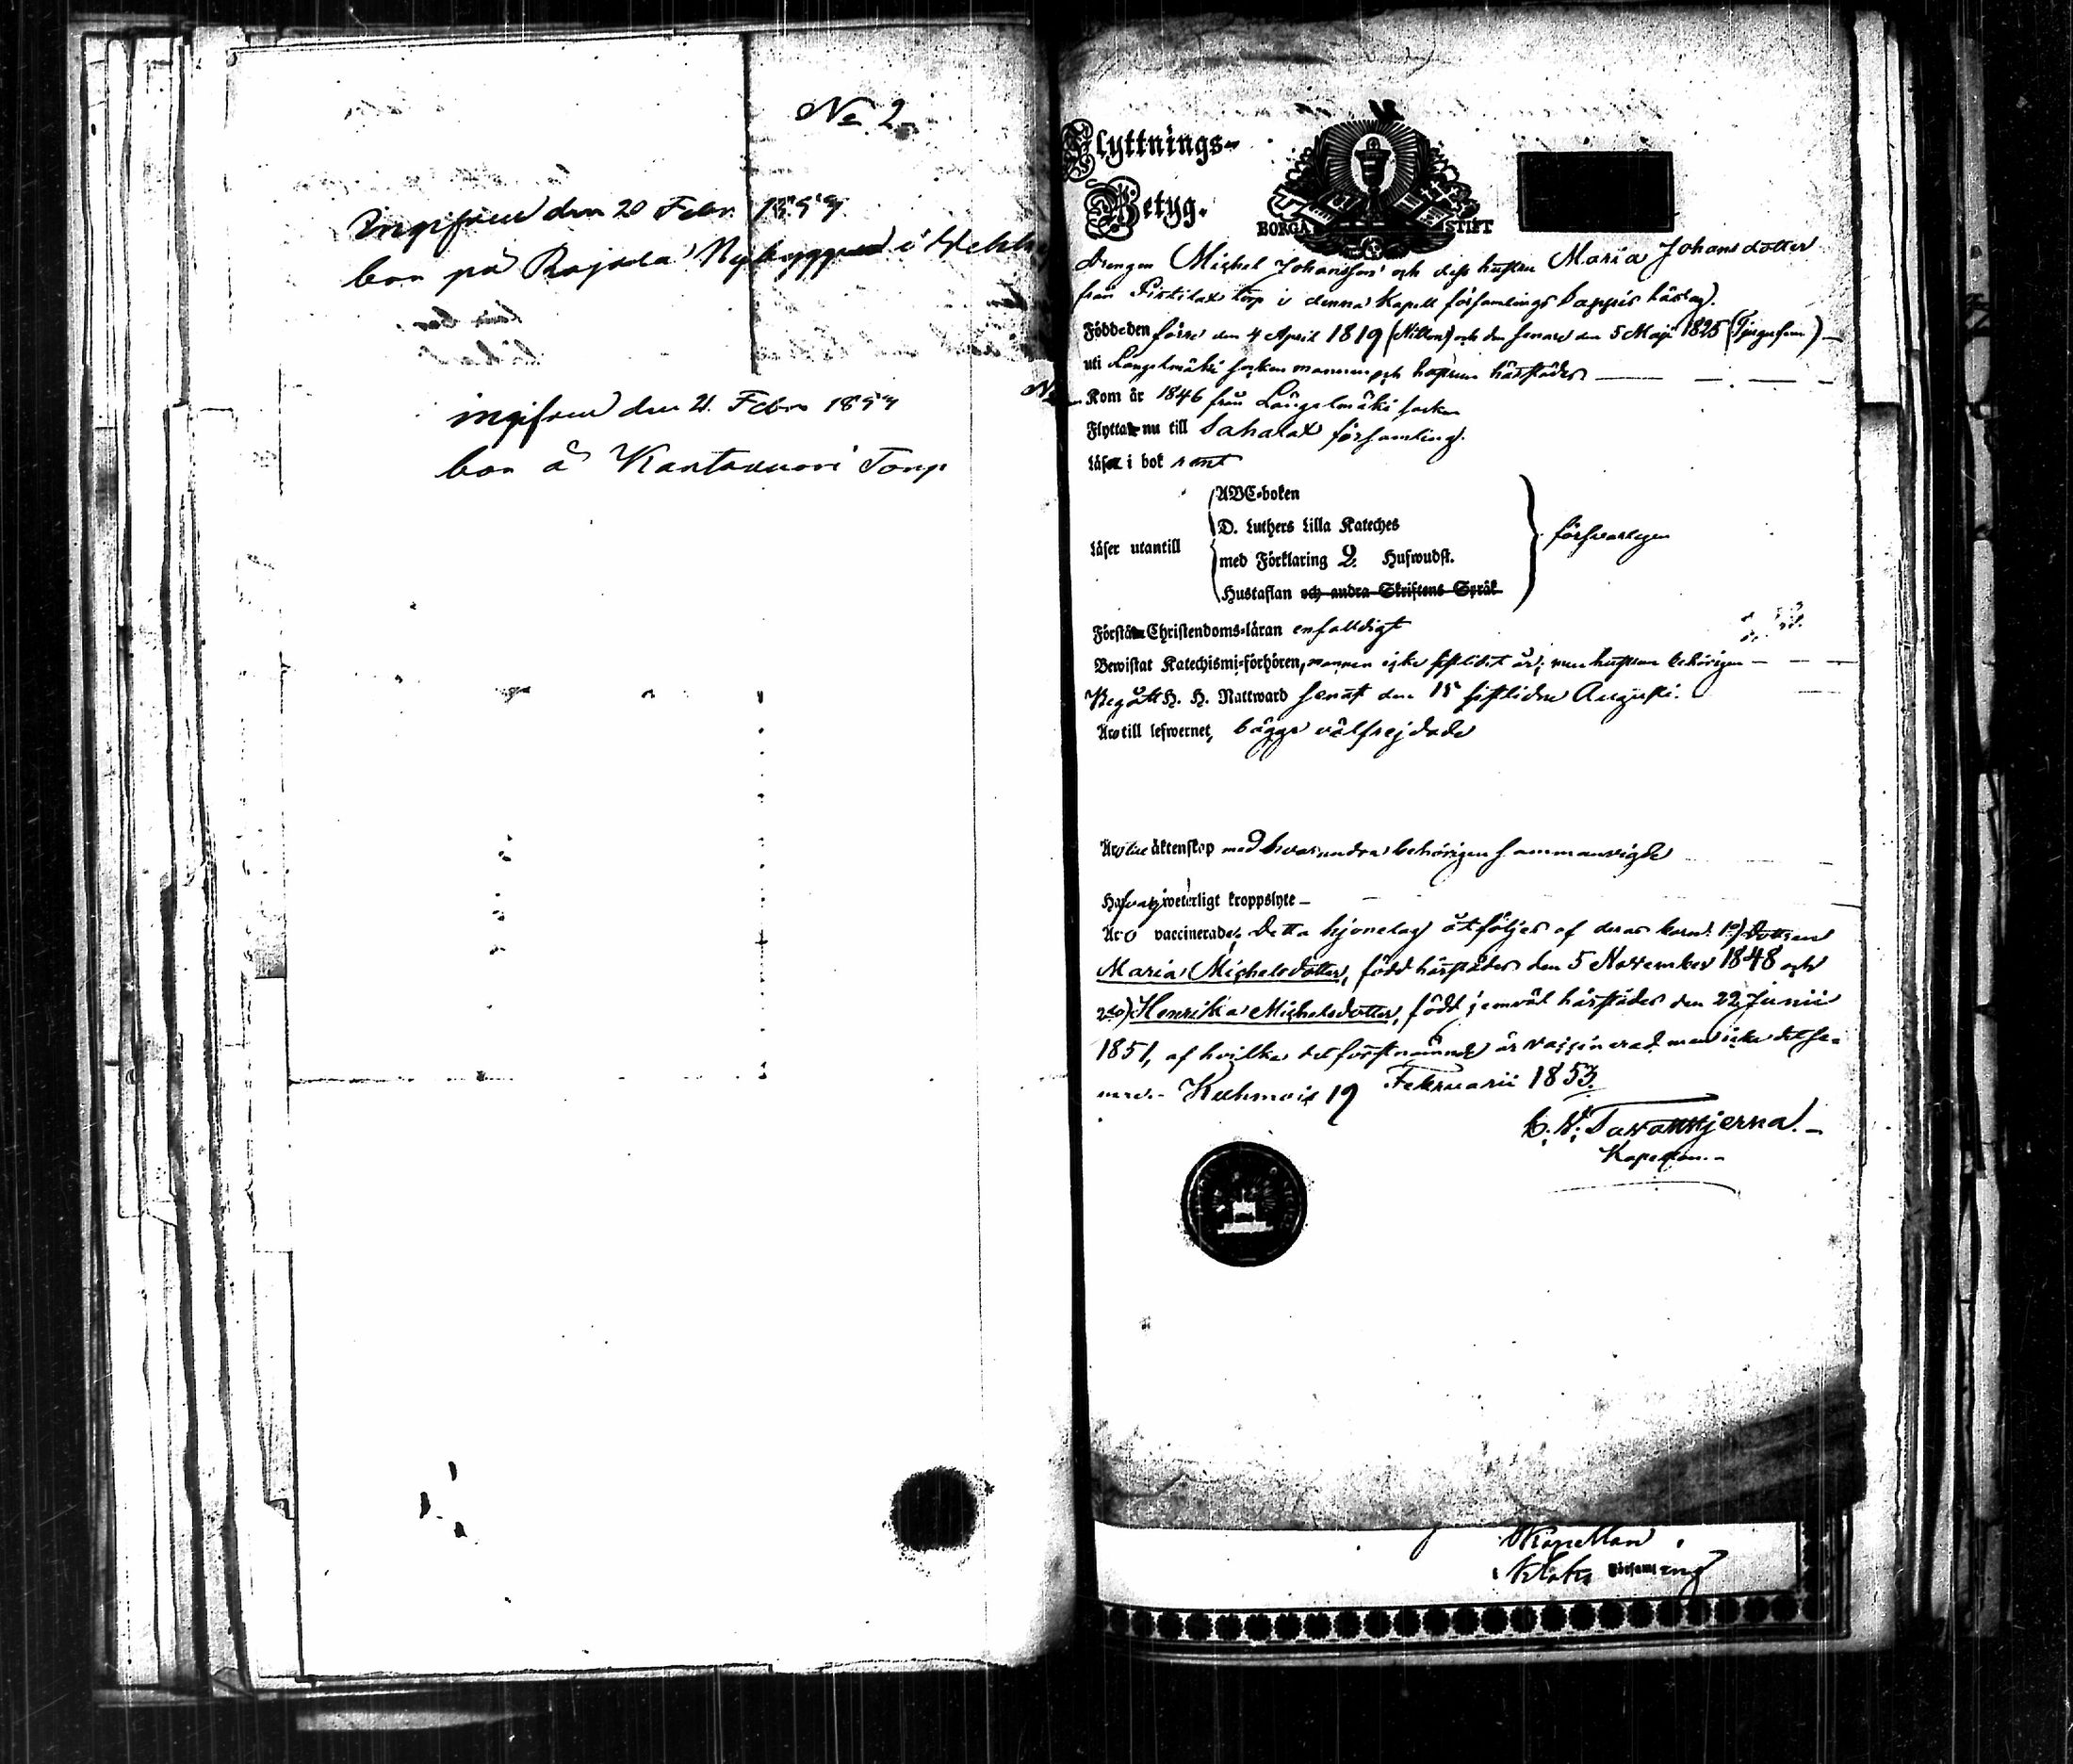 No 2
Ingifven den 20 Febr.
bor på Rajala Nybygget i
ingifven den 21 Febr
bor å Torp
Flyttnings-
Betyg.
BORGÅ STIFT
Drengen Michel Johansson och dess hustru Maria Johansdotter
från torp i denna Kapell församlings Sappis härtag.
Födde den förre den 4 April 1819 och den senare den 5 Maji 1825
uti Längelmäki socken mannen och hustrun härstädes
Kom år 1846 från Längelmäki socken
Flytta nu till Sahalax församling.
Läsa i bok rent
Läser utantill
ABC-boken
D. Luthers Lilla Kateches
med Förklaring 2. Hufwudst.
Hustaflan och andra Skriftens Språk
försvarligen
Förstå Christendoms-läran enfaldigt
Bewistat Katechismi-förhören, mannen icke sistlidit år, men hustrun behörigen
Begått H. H. Nattward senast den 15 sistlidne Augusti.
Äro till lefwernet, bägge välfrejdade
Äro i äktenskap med hvarandra behörigen sammanvigde
Hafva ej weterligt kroppslyte
Äro vaccinerade. Detta hjonelag åtföljes af deras barn: 1o) Dottren
Maria Michelsdotter, född härstädes den 5 November 1848 och
2do) Henrika Michelsdotter, född jemväl härstädes den 22 Junii
1851, af hvilka det förstnämnde är vaccinerad men icke det se-
nare. Kuhmois 19 Februarii 1853.
Kapellan
Kapellan
Församling